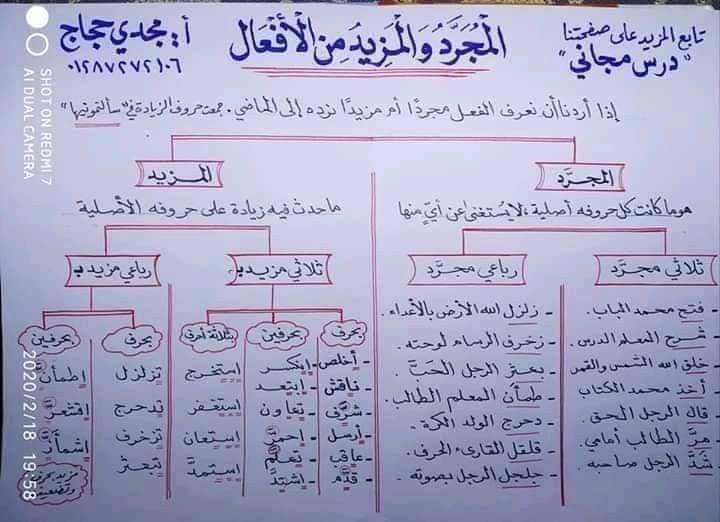 تابع المزيد على صفحتنا
"درس مجاني"
المُجَرَّد والمَزِيد مِنَ الأَفْعَال
أ. مجدي حجاج
٠١٢٨٧٢٧٢١٠٦
إذا أردنا أن نعرف الفعل مجردًا أم مزيدًا نرده إلى الماضي. جمعت حروف الزيادة في "سألتمونيها"
المجرَّد
هو ما كانت كل حروفه أصلية، لا يُستغنى عن أيٍّ منها
ثلاثي مجرَّد
- فتح محمد الباب.
- شرح المعلم الدرس.
- خلق الله الشمس والقمر
- أخذ محمد الكتاب
- قال الرجل الحق.
- مرَّ الطالب أمامي.
- شدَّ الرجل صاحبه.
رباعي مجرَّد
- زلزل الله الأرض بالأعداء.
- زخرف الرسام لوحته.
- بعثر الرجل الحَبَّ.
- طمأن المعلم الطالب.
- دحرج الولد الكرة.
- قلقل القارئ الحرف.
- جلجل الرجل بصوته.
المزيد
ما حدث فيه زيادة على حروفه الأصلية
ثلاثي مزيد بـ
بحرف
- أخلص
- ناقش
- شرَّف
- أرسل
- عاقب
- قدَّم
بحرفين
- ابتكر
- ابتعد
- تعاون
- احمرَّ
- تعلَّم
- اشتدَّ
بثلاثة أحرف
استخرج
استغفر
استعان
استمدَّ
رباعي مزيد بـ
بحرف
تزلزل
تدحرج
تزخرف
تبعثر
بحرفين
اطمأنَّ
اقشعرَّ
اشمأزَّ
مزيد بحرف وتضعيف
SHOT ON REDMI 7
AI DUAL CAMERA
2020/2/18 19:58